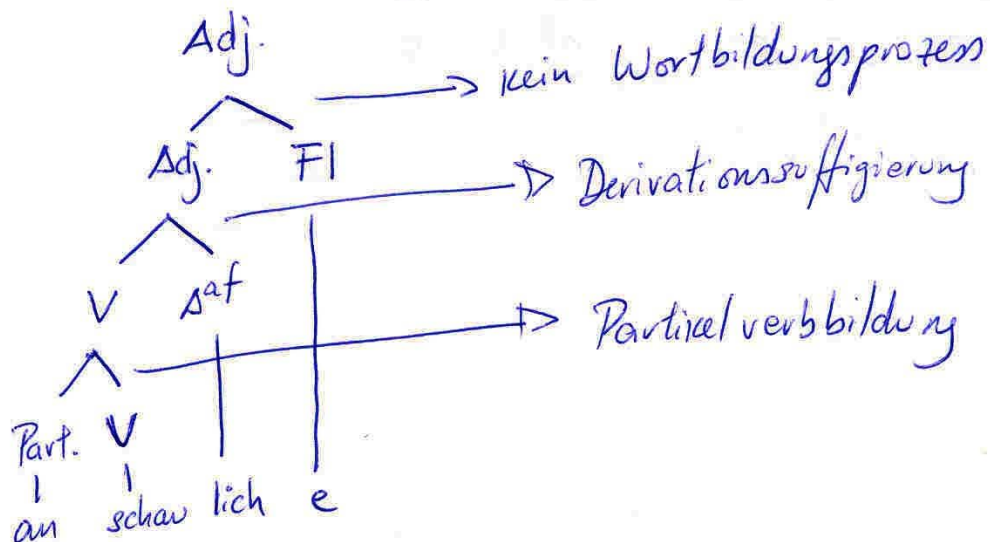 Adj.
kein Wortbildungsprozess
Adj. Fl
Derivationssuffigierung
V af
Partikelverbbildung
Part. V
an schau lich e